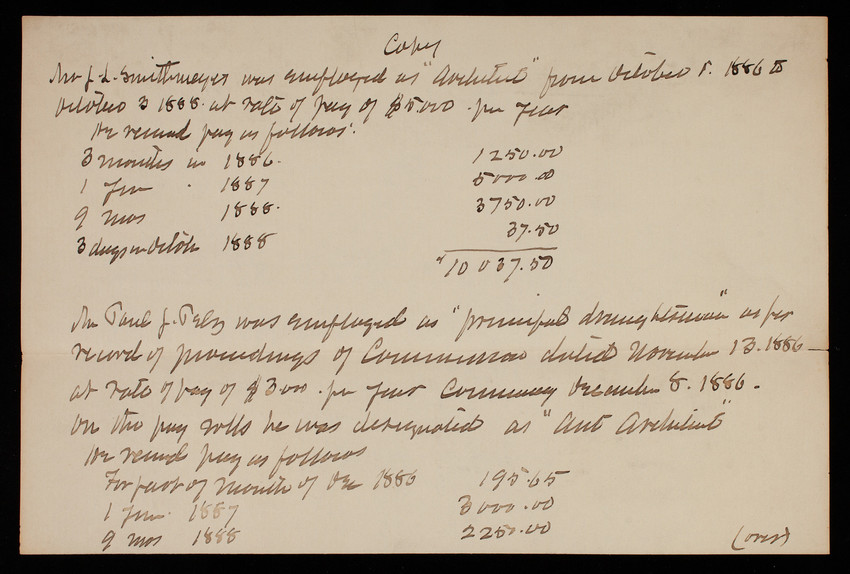 Copy
Mr J. L. Smithmeyer was employed as "Architect" from October 1. 1886 to
October 3 1888. at rate of pay of $5.000 per year
He received pay as follows:
3 months in 1886. 1250.00
1 year . 1887 5000.00
9 mos 1888. 3750.00
3 days in Octob 1888 37.50
10037.50
Mr Paul J. Pelz was employed as "principal draughtsman" as per
record of proceedings of Commission dated November 13. 1886
at rate of pay of $3000. per year Commencing December 8. 1886.
On the pay rolls he was designated as "Asst Architect"
He received pay as follows
For part of month of Dec 1886 195.65
1 year 1887 3000.00
9 mos 1888 2250.00
(over)